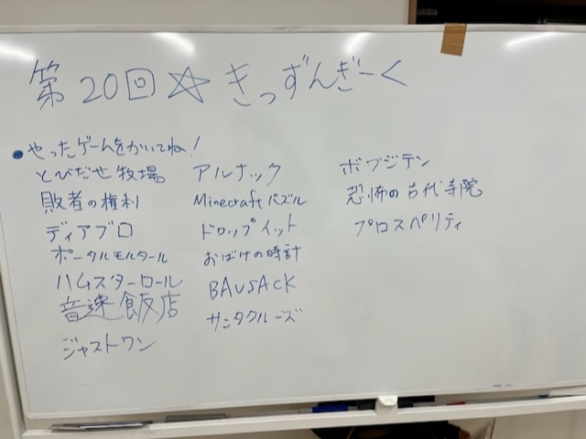 第20回☆きっずんぎーく
●やったゲームをかいてね!
とびだせ牧場
敗者の権利
ディアブロ
ポータルモルタル
ハムスターロール
音速飯店
ジャストワン
アルナック
Minecraftパズル
ドロップイット
おばけの時計
BAUSACK
サンタクルーズ
ボブジテン
恐怖の古代寺院
プロスペリティ